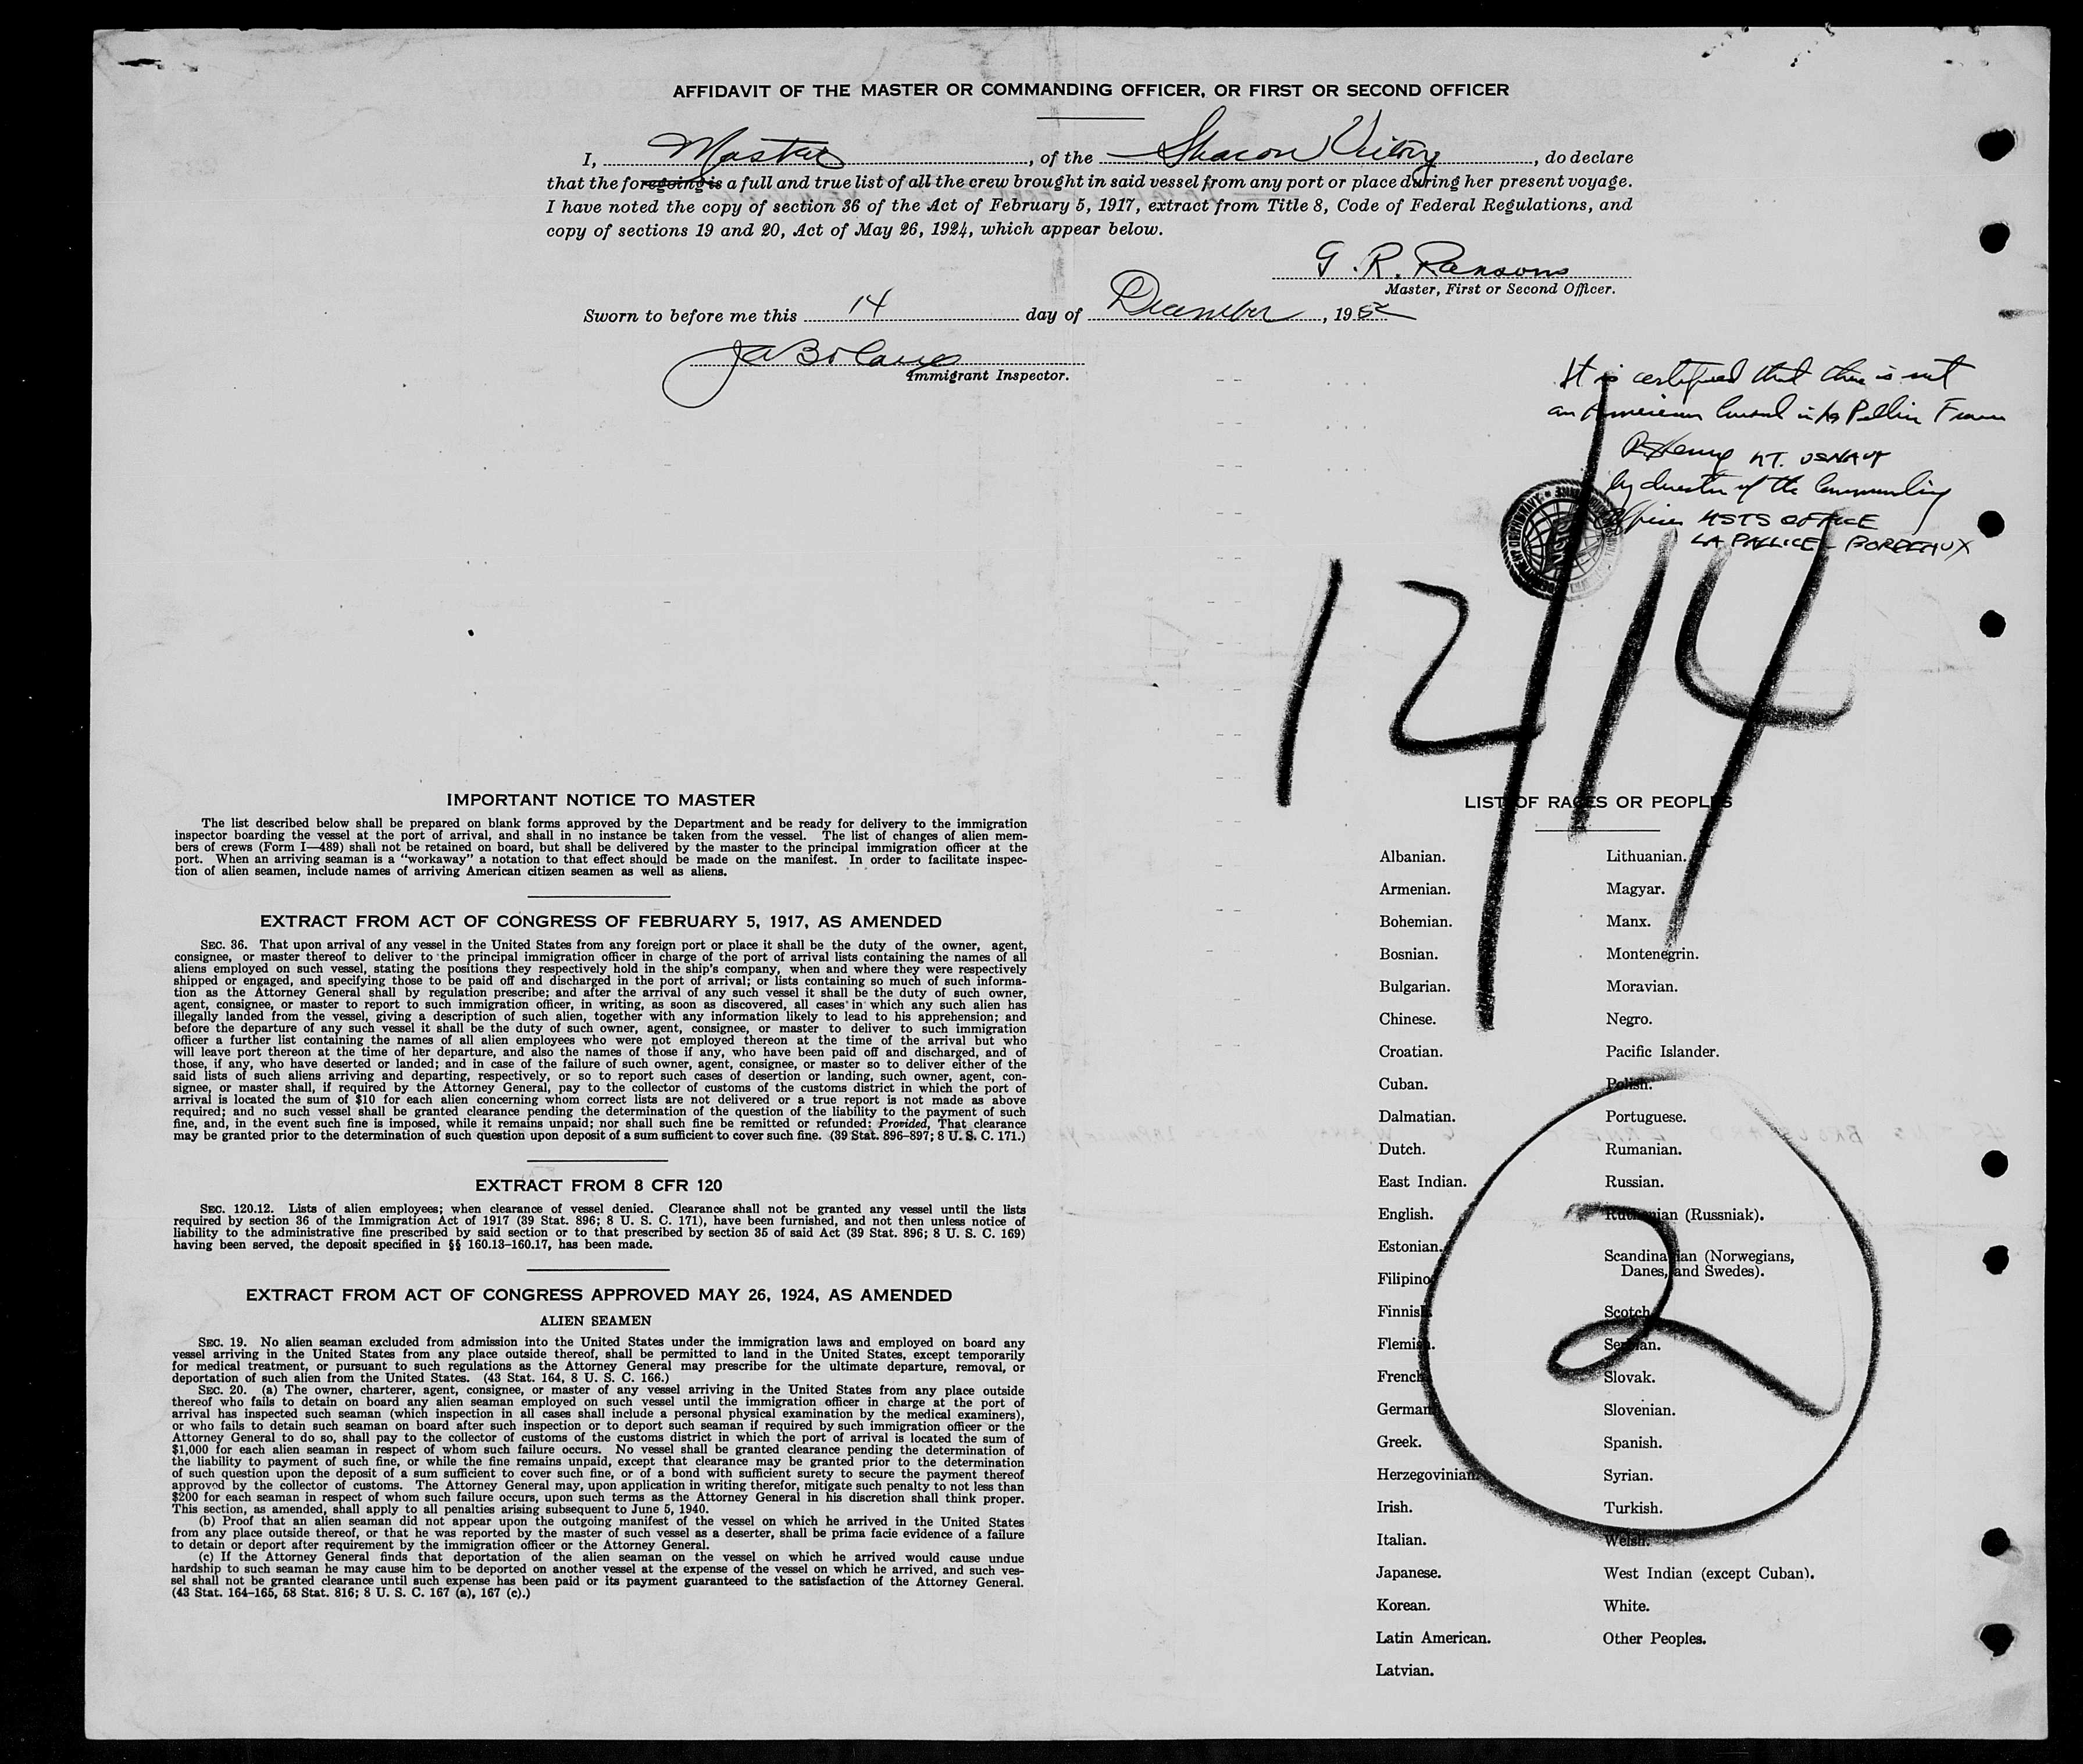 AFFIDAVIT OF THE MASTER OR COMMANDING OFFICER, OR FIRST OR SECOND OFFICER
I, Master, of the Sharon Victory, do declare
that the foregoing is a full and true list of all the crew brought in said vessel from any port or place during her present voyage.
I have noted the copy of section 36 of the Act of February 5, 1917, extract from Title 8, Code of Federal Regulations, and
copy of sections 19 and 20, Act of May 26, 1924, which appear below.
G. R. Ransons
Master, First or Second Officer.
Sworn to before me this 14 day of December, 1952
Immigrant Inspector.
It is certified that there is not
an American Consul in La Pallice France
LT. USNAVY
by direction of the Commanding
Officer MSTS OFFICE
LA PALLICE - BORDEAUX
12/14/
IMPORTANT NOTICE TO MASTER
The list described below shall be prepared on blank forms approved by the Department and be ready for delivery to the immigration
inspector boarding the vessel at the port of arrival, and shall in no instance be taken from the vessel. The list of changes of alien mem-
bers of crews (Form I—489) shall not be retained on board, but shall be delivered by the master to the principal immigration officer at the
port. When an arriving seaman is a "workaway" a notation to that effect should be made on the manifest. In order to facilitate inspec-
tion of alien seamen, include names of arriving American citizen seamen as well as aliens.
EXTRACT FROM ACT OF CONGRESS OF FEBRUARY 5, 1917, AS AMENDED
SEC. 36. That upon arrival of any vessel in the United States from any foreign port or place it shall be the duty of the owner, agent,
consignee, or master thereof to deliver to the principal immigration officer in charge of the port of arrival lists containing the names of all
aliens employed on such vessel, stating the positions they respectively hold in the ship's company, when and where they were respectively
shipped or engaged, and specifying those to be paid off and discharged in the port of arrival; or lists containing so much of such informa-
tion as the Attorney General shall by regulation prescribe; and after the arrival of any such vessel it shall be the duty of such owner,
agent, consignee, or master to report to such immigration officer, in writing, as soon as discovered, all cases in which any such alien has
illegally landed from the vessel, giving a description of such alien, together with any information likely to lead to his apprehension; and
before the departure of any such vessel it shall be the duty of such owner, agent, consignee, or master to deliver to such immigration
officer a further list containing the names of all alien employees who were not employed thereon at the time of the arrival but who
will leave port thereon at the time of her departure, and also the names of those if any, who have been paid off and discharged, and of
those, if any, who have deserted or landed; and in case of the failure of such owner, agent, consignee, or master so to deliver either of the
said lists of such aliens arriving and departing, respectively, or so to report such cases of desertion or landing, such owner, agent, con-
signee, or master shall, if required by the Attorney General, pay to the collector of customs of the customs district in which the port of
arrival is located the sum of $10 for each alien concerning whom correct lists are not delivered or a true report is not made as above
required; and no such vessel shall be granted clearance pending the determination of the question of the liability to the payment of such
fine, and, in the event such fine is imposed, while it remains unpaid; nor shall such fine be remitted or refunded: Provided, That clearance
may be granted prior to the determination of such question upon deposit of a sum sufficient to cover such fine. (39 Stat. 896-897; 8 U. S. C. 171.)
EXTRACT FROM 8 CFR 120
SEC. 120.12. Lists of alien employees; when clearance of vessel denied. Clearance shall not be granted any vessel until the lists
required by section 36 of the Immigration Act of 1917 (39 Stat. 896; 8 U. S. C. 171), have been furnished, and not then unless notice of
liability to the administrative fine prescribed by said section or to that prescribed by section 35 of said Act (39 Stat. 896; 8 U. S. C. 169)
having been served, the deposit specified in §§ 160.13-160.17, has been made.
EXTRACT FROM ACT OF CONGRESS APPROVED MAY 26, 1924, AS AMENDED
ALIEN SEAMEN
SEC. 19. No alien seaman excluded from admission into the United States under the immigration laws and employed on board any
vessel arriving in the United States from any place outside thereof, shall be permitted to land in the United States, except temporarily
for medical treatment, or pursuant to such regulations as the Attorney General may prescribe for the ultimate departure, removal, or
deportation of such alien from the United States. (43 Stat. 164, 8 U. S. C. 166.)
SEC. 20. (a) The owner, charterer, agent, consignee, or master of any vessel arriving in the United States from any place outside
thereof who fails to detain on board any alien seaman employed on such vessel until the immigration officer in charge at the port of
arrival has inspected such seaman (which inspection in all cases shall include a personal physical examination by the medical examiners),
or who fails to detain such seaman on board after such inspection or to deport such seaman if required by such immigration officer or the
Attorney General to do so, shall pay to the collector of customs of the customs district in which the port of arrival is located the sum of
$1,000 for each alien seaman in respect of whom such failure occurs. No vessel shall be granted clearance pending the determination of
the liability to payment of such fine, or while the fine remains unpaid, except that clearance may be granted prior to the determination
of such question upon the deposit of a sum sufficient to cover such fine, or of a bond with sufficient surety to secure the payment thereof
approved by the collector of customs. The Attorney General may, upon application in writing therefor, mitigate such penalty to not less than
$200 for each seaman in respect of whom such failure occurs, upon such terms as the Attorney General in his discretion shall think proper.
This section, as amended, shall apply to all penalties arising subsequent to June 5, 1940.
(b) Proof that an alien seaman did not appear upon the outgoing manifest of the vessel on which he arrived in the United States
from any place outside thereof, or that he was reported by the master of such vessel as a deserter, shall be prima facie evidence of a failure
to detain or deport after requirement by the immigration officer or the Attorney General.
(c) If the Attorney General finds that deportation of the alien seaman on the vessel on which he arrived would cause undue
hardship to such seaman he may cause him to be deported on another vessel at the expense of the vessel on which he arrived, and such ves-
sel shall not be granted clearance until such expense has been paid or its payment guaranteed to the satisfaction of the Attorney General.
(43 Stat. 164-165, 58 Stat. 816; 8 U. S. C. 167 (a), 167 (c).)
LIST OF RACES OR PEOPLES
Albanian.
Armenian.
Bohemian.
Bosnian.
Bulgarian.
Chinese.
Croatian.
Cuban.
Dalmatian.
Dutch.
East Indian.
English.
Estonian.
Filipino.
Finnish.
Flemish.
French.
German.
Greek.
Herzegovinian.
Irish.
Italian.
Japanese.
Korean.
Latin American.
Latvian.
Lithuanian.
Magyar.
Manx.
Montenegrin.
Moravian.
Negro.
Pacific Islander.
Polish.
Portuguese.
Rumanian.
Russian.
Ruthenian (Russniak).
Scandinavian (Norwegians,
Danes, and Swedes).
Scotch.
Serbian.
Slovak.
Slovenian.
Spanish.
Syrian.
Turkish.
Welsh.
West Indian (except Cuban).
White.
Other Peoples.
2